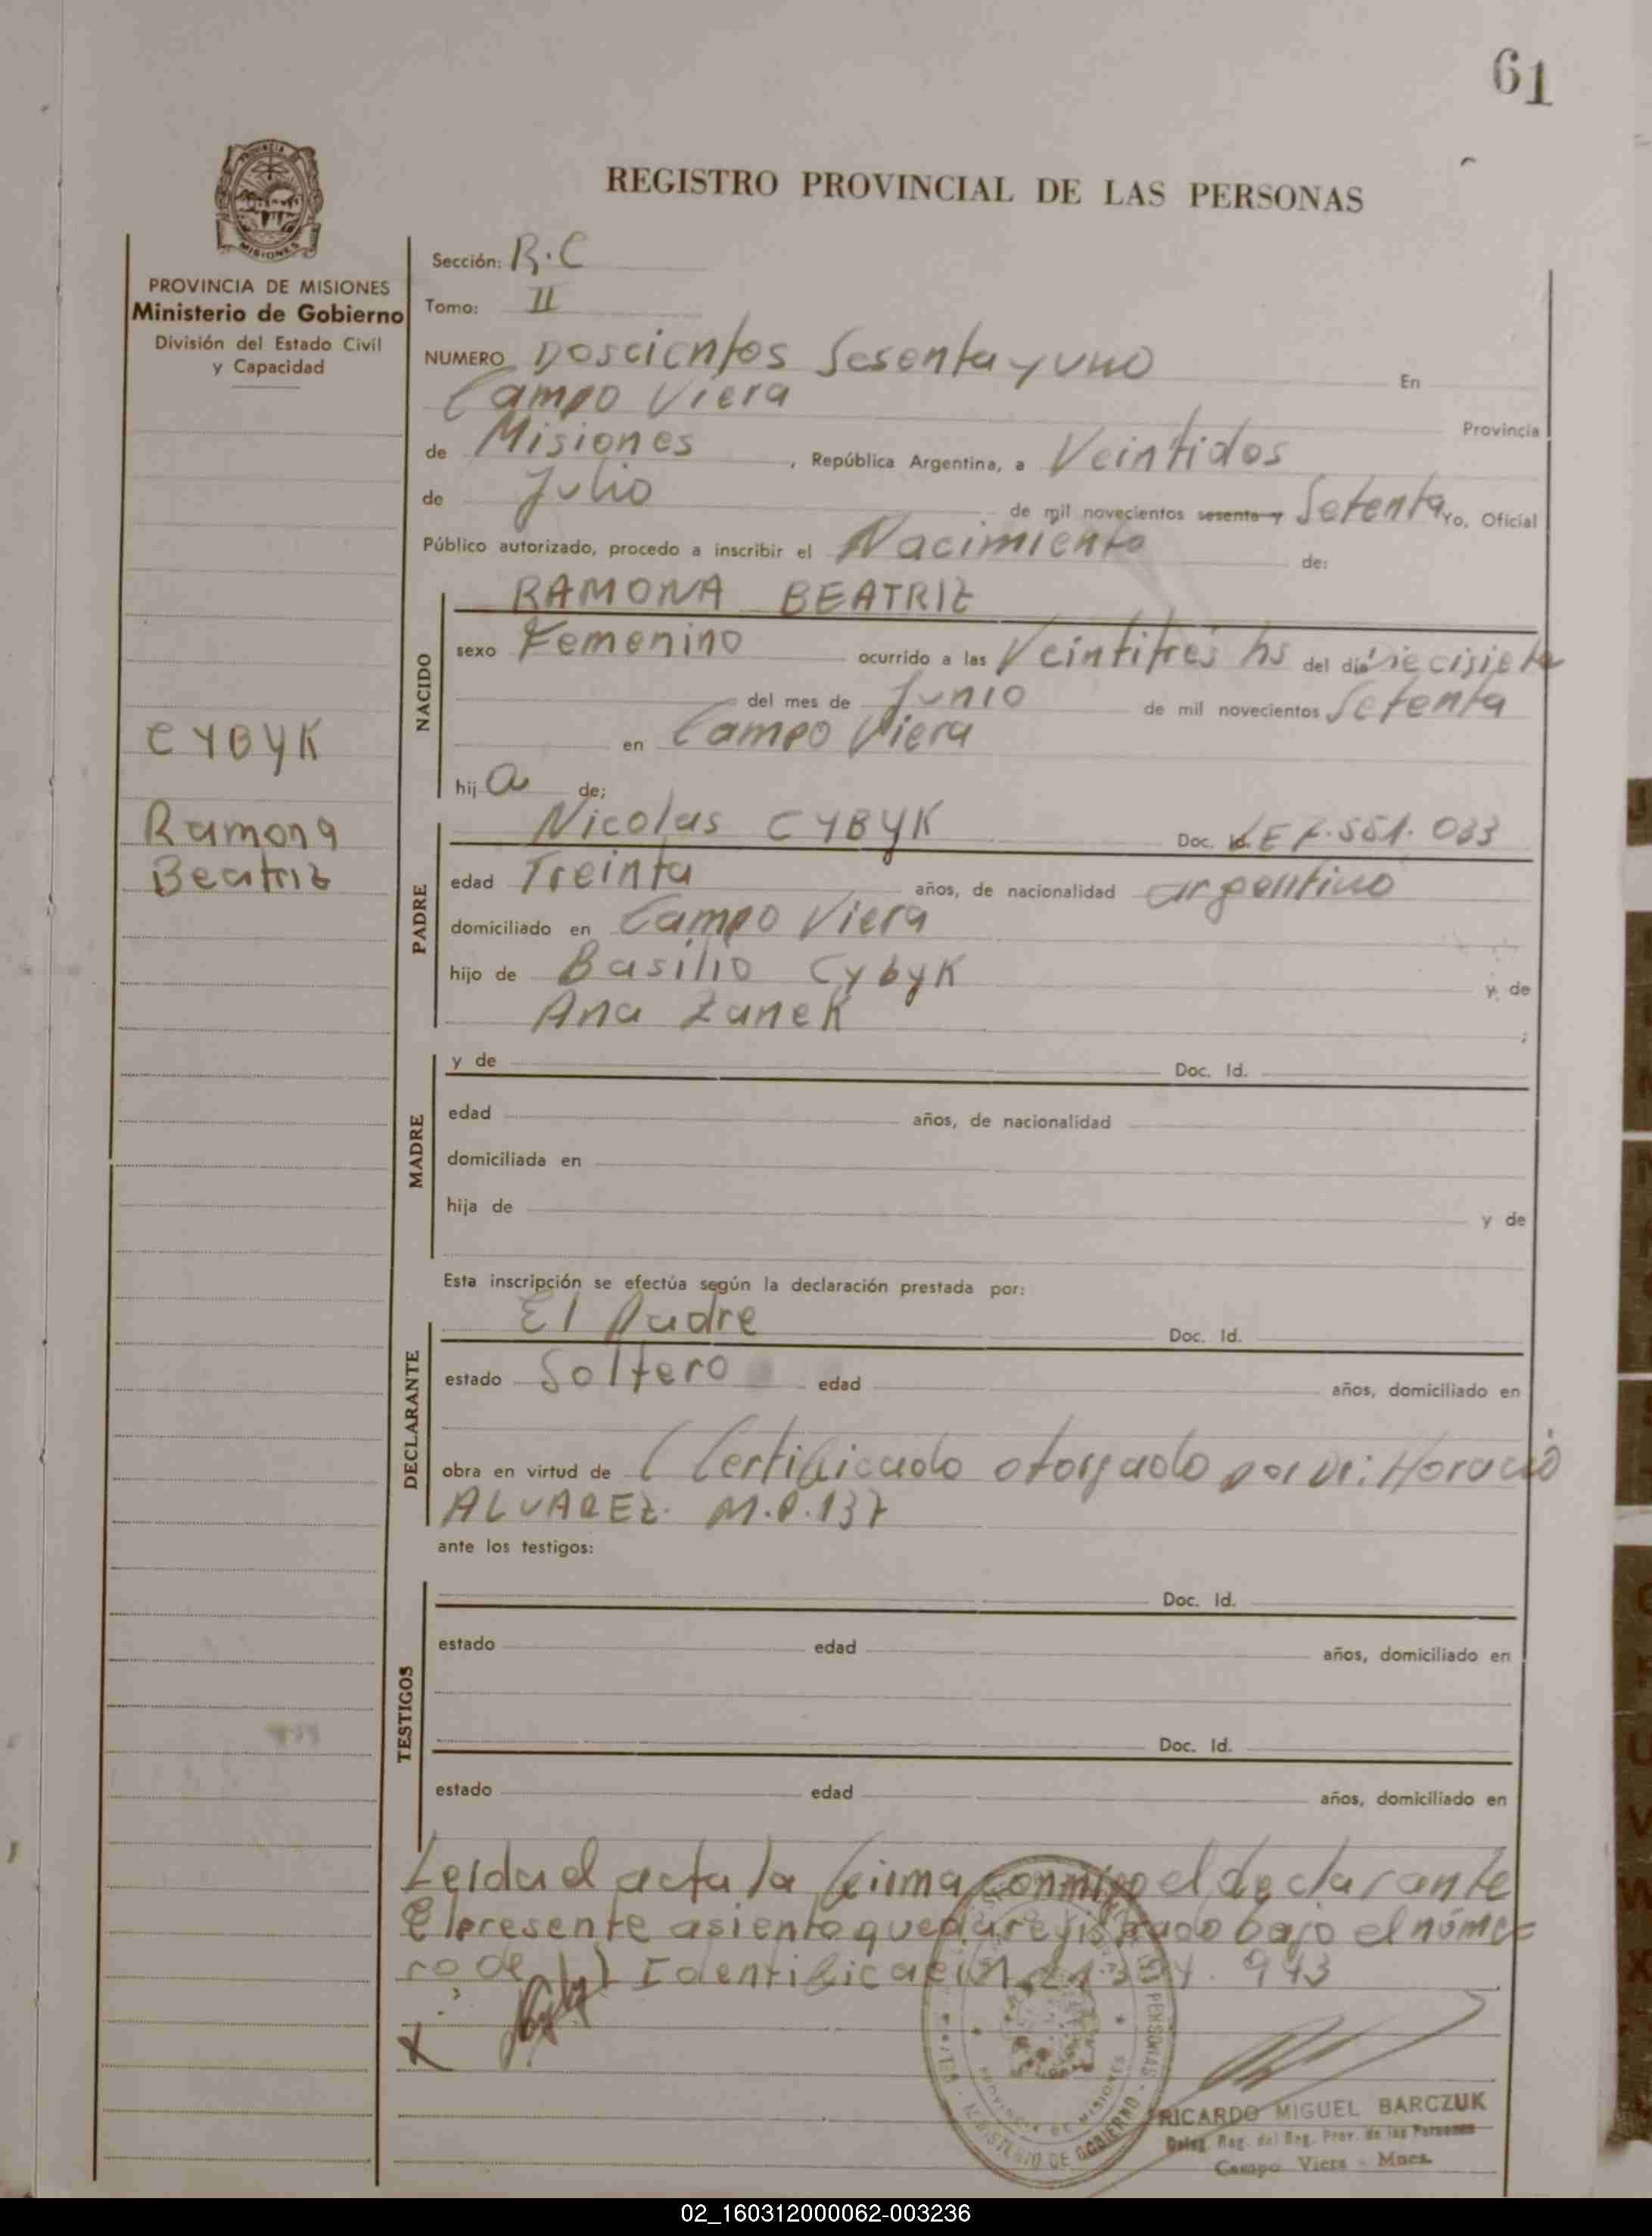 61
REGISTRO PROVINCIAL DE LAS PERSONAS
PROVINCIA
MISIONES
PROVINCIA DE MISIONES
Ministerio de Gobierno
División del Estado Civil
y Capacidad
CYBYK
Ramona
Beatriz
Sección: R.C
Tomo: II
NUMERO Doscientos Sesenta y uno En
Campo Viera Provincia
de Misiones , República Argentina, a Veintidos
de Julio de mil novecientos sesenta y Setenta Yo, Oficial
Público autorizado, procedo a inscribir el Nacimiento de:
NACIDO
RAMONA BEATRIZ
sexo Femenino ocurrido a las Veintitrés hs del día diecisiete
del mes de Junio de mil novecientos Setenta
en Campo Viera
hij a de;
PADRE
Nicolas CYBYK Doc. Id. LE 7.551.033
edad Treinta años, de nacionalidad argentino
domiciliado en Campo Viera
hijo de Basilio Cybyk y de
Ana Zanek ;
MADRE
y de Doc. Id.
edad años, de nacionalidad
domiciliada en
hija de y de
Esta inscripción se efectúa según la declaración prestada por:
DECLARANTE
El Padre Doc. Id.
estado Soltero edad años, domiciliado en
obra en virtud de ( Certificado otorgado por Dr: Horacio
ALVAREZ. M.P.137
ante los testigos:
TESTIGOS
Doc. Id.
estado edad años, domiciliado en
Doc. Id.
estado edad años, domiciliado en
Leida el acta la firma conmigo el declarante
El presente asiento queda registrado bajo el núme=
ro de Identificación 943
X
PERSONAS
PROVINCIA DE MISIONES
MINISTERIO DE GOBIERNO
RICARDO MIGUEL BARCZUK
Deleg. Reg. del Reg. Prov. de las Personas
Campo Viera - Mnes.
02_160312000062-003236